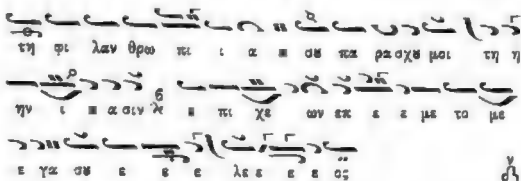 τη φι λαν θρω πι ι α ͷ σȣ πα ρα σχȣ μοι τη η
ην ι ͷ α σιν λ ͷ πι χε ων επ ε ε με το με
ε γα σȣ ε ε ε λε ε ε ε ος